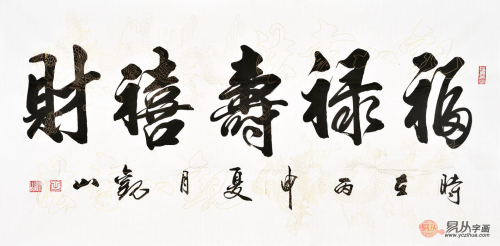 福祿壽禧財
時在丙申夏月觀山
易从字画
www.yczihua.com